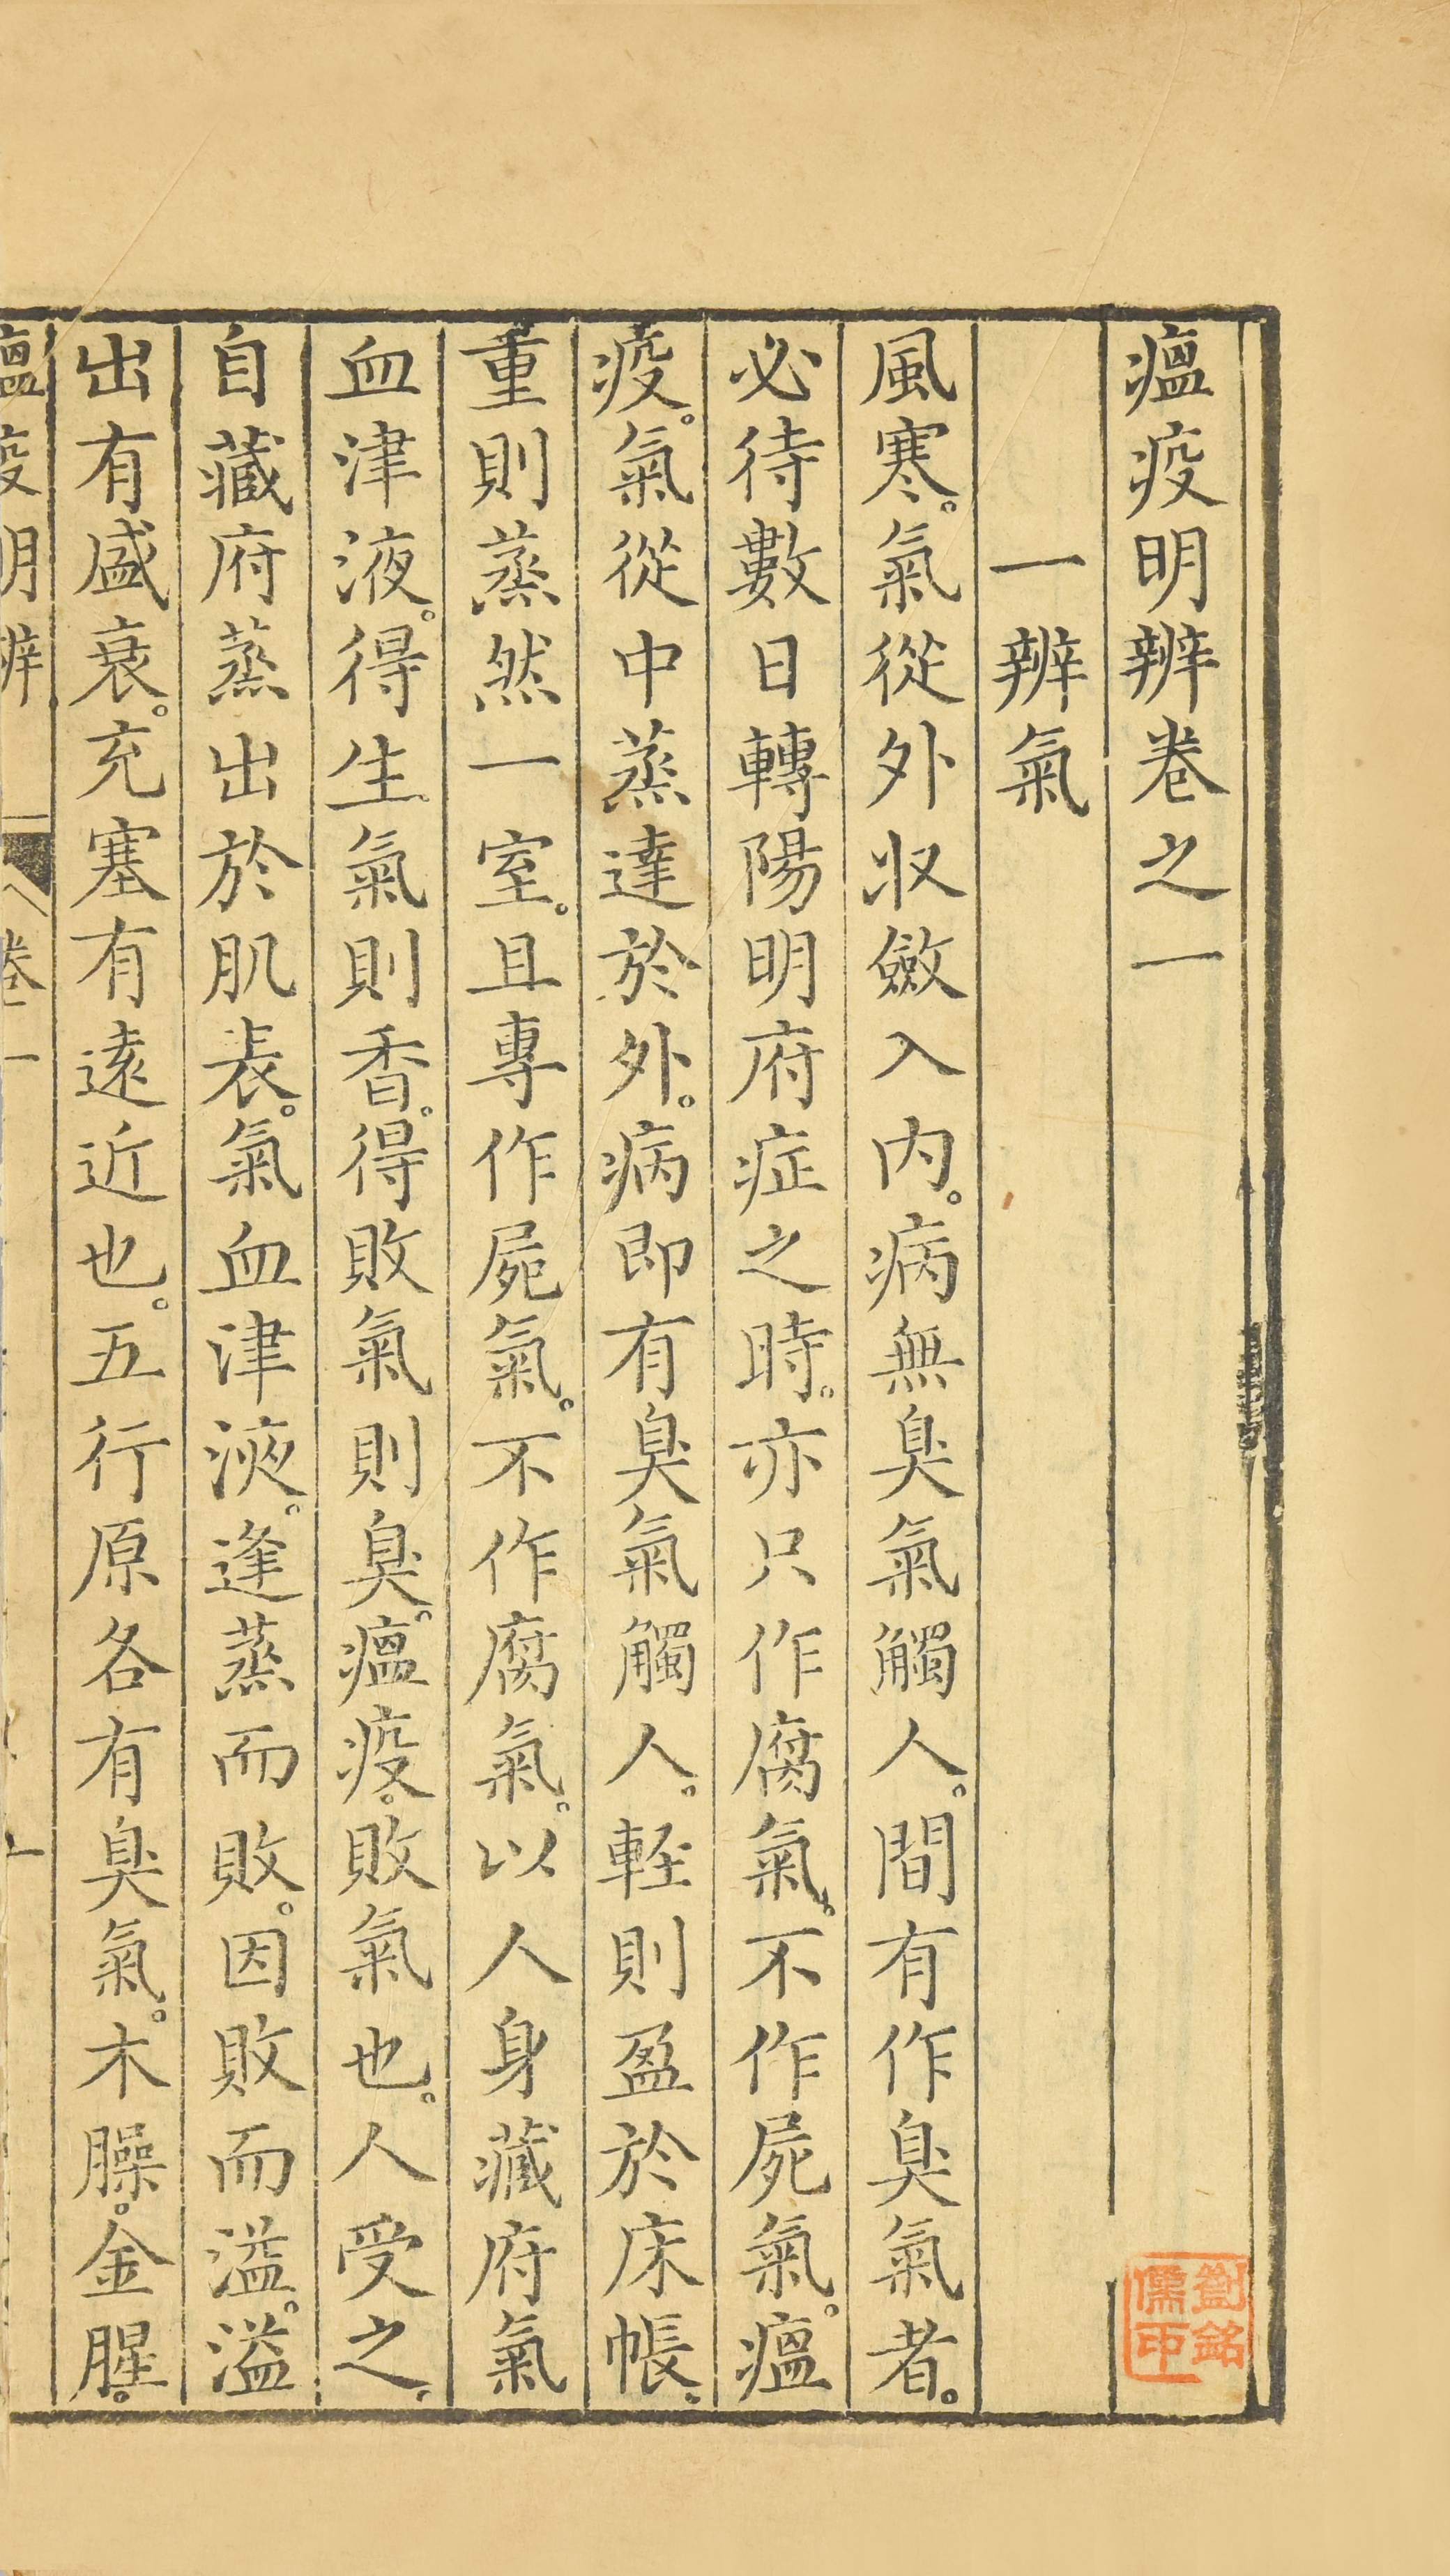 瘟疫明辨卷之一
一辨氣
風寒。氣從外収斂入內。病無臭氣觸人。間有作臭氣者。
必待數日轉陽明府症之時。亦只作腐氣。不作屍氣。瘟
疫。氣從中蒸達於外。病即有臭氣觸人。軽則盈於床帳。
重則蒸然一室。且專作屍氣。不作腐氣。以人身藏府氣
血津液。得生氣則香。得敗氣則臭。瘟疫。敗氣也。人受之。
自藏府蒸出於肌表。氣血津液。逢蒸而敗。因敗而溢。溢
出有盛衰。充塞有遠近也。五行原各有臭氣。木臊。金腥。
瘟疫明辨 卷一 一
劉銘
儒印